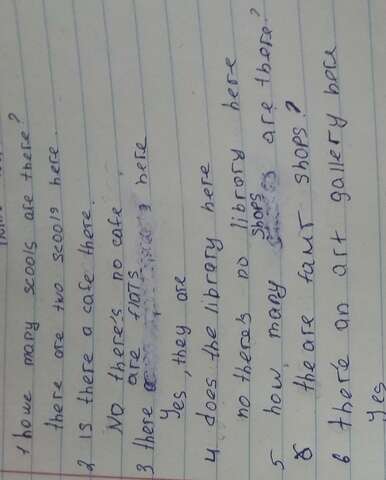 1 howe many scools are there?
there are two scools here
2 is there a cafe there.
No there's no cafe
3 there are flats here
Yes, they are
4 does the library here
no there's no library here
5 how many shops are there?
the are faur shops?
6 there an art gallery here
Yes